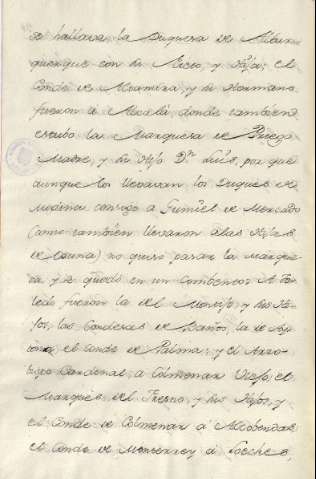 se hallava, la Duquesa de Albur-
querque con su Nieto, y Hijos; el
Conde de Altamira, y su Hermana
fueron a Alcalà donde tambien
estubo la Marquesa de Priego
Madre, y su Hijo Dn Luis, por que
aunque los llevavan los Duques de
Medina consigo a Gumiel de Mercado
(como tambien llevaron a las Hijas
de Osuna) no quiso pasar la Marque-
sa, y se quedò en un Combento: A To-
ledo fueron la del Montijo, y sus Hi-
jos, las Condesas de Baños, la de
el Conde de Palma; y el Arzo-
bispo Cardenal, a Colmenar Viejo, el
Marques del Fresno, y sus Hijos, y
el Conde de Colmenar a Alcobendas
el Conde de Monterrey a Loeches,